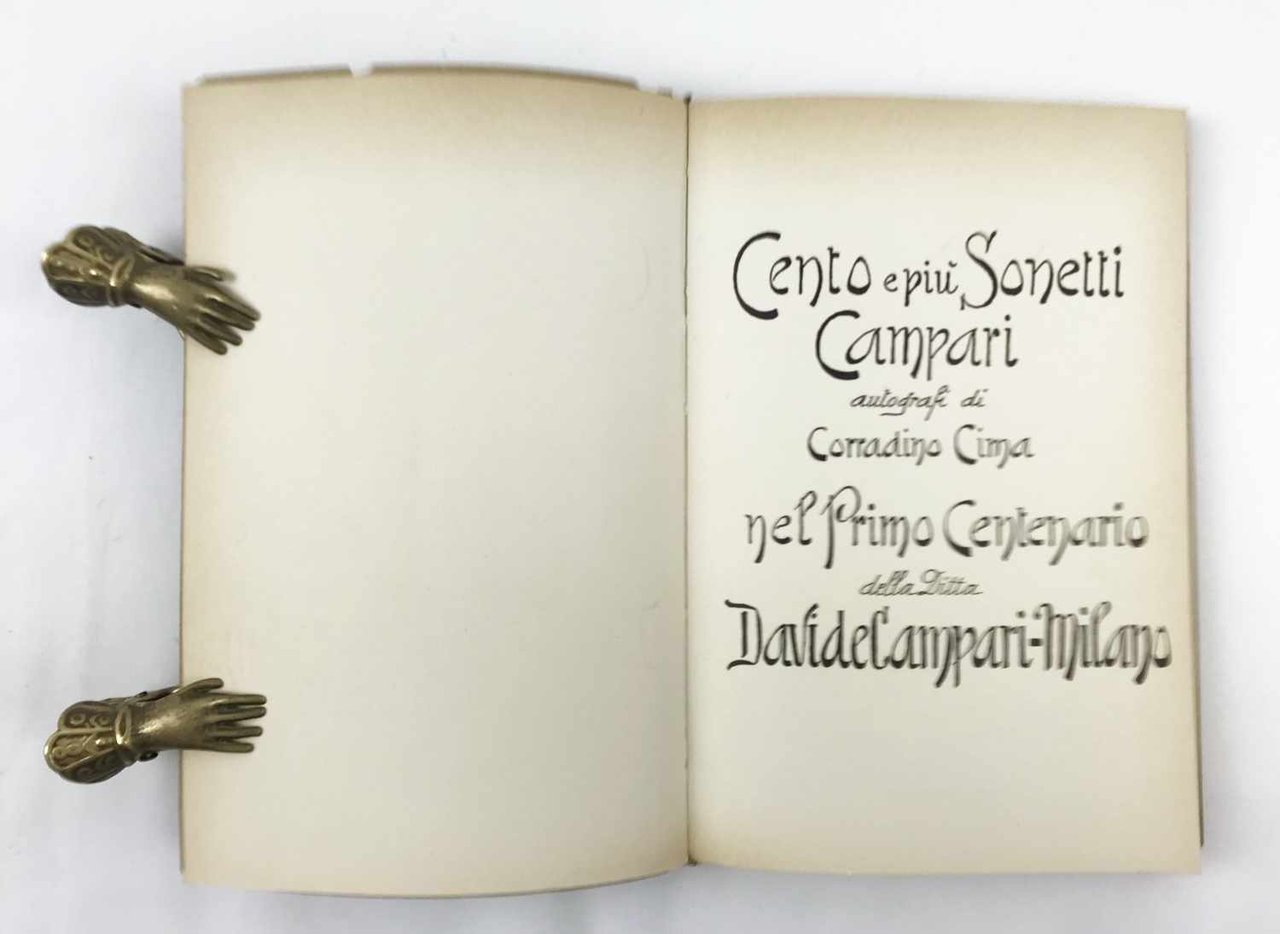 Cento e più Sonetti
Campari
autografi di
Corradino Cima
nel Primo Centenario
della Ditta
Davide Campari-Milano